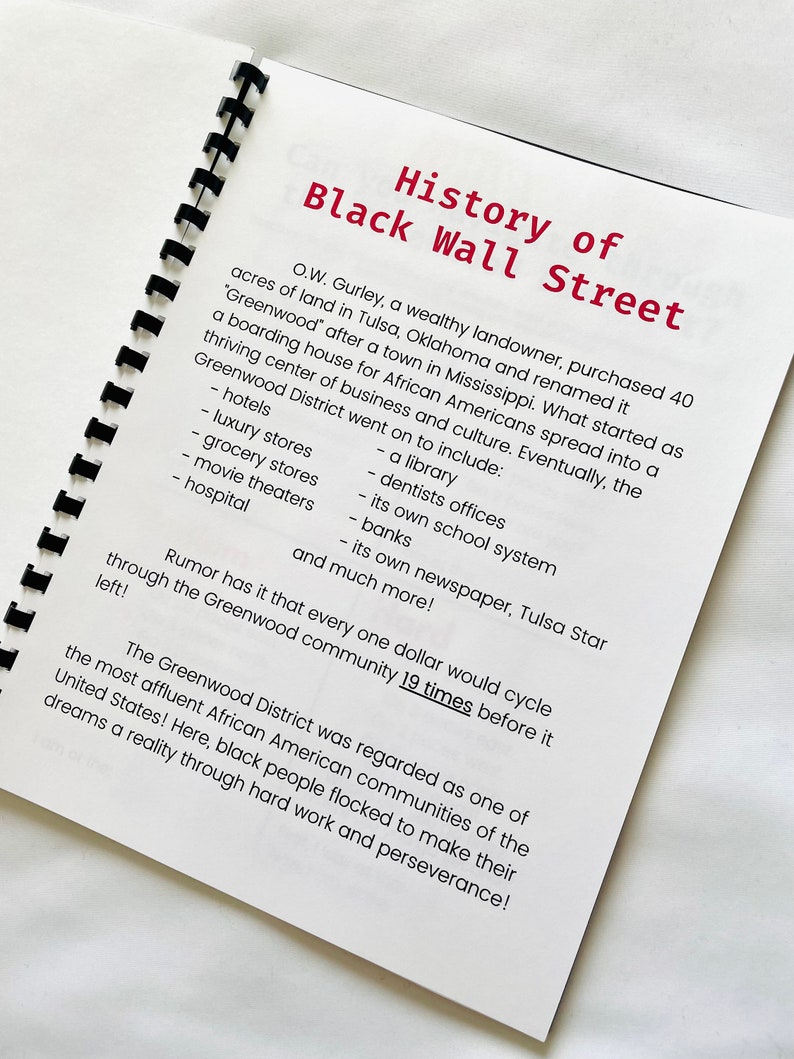 History of
Black Wall Street
O.W. Gurley, a wealthy landowner, purchased 40
acres of land in Tulsa, Oklahoma and renamed it
"Greenwood" after a town in Mississippi. What started as
a boarding house for African Americans spread into a
thriving center of business and culture. Eventually, the
Greenwood District went on to include:
- hotels
- luxury stores
- grocery stores
- movie theaters
- hospital
- a library
- dentists offices
- its own school system
- banks
- its own newspaper, Tulsa Star
and much more!
Rumor has it that every one dollar would cycle
through the Greenwood community 19 times before it
left!
The Greenwood District was regarded as one of
the most affluent African American communities of the
United States! Here, black people flocked to make their
dreams a reality through hard work and perseverance!